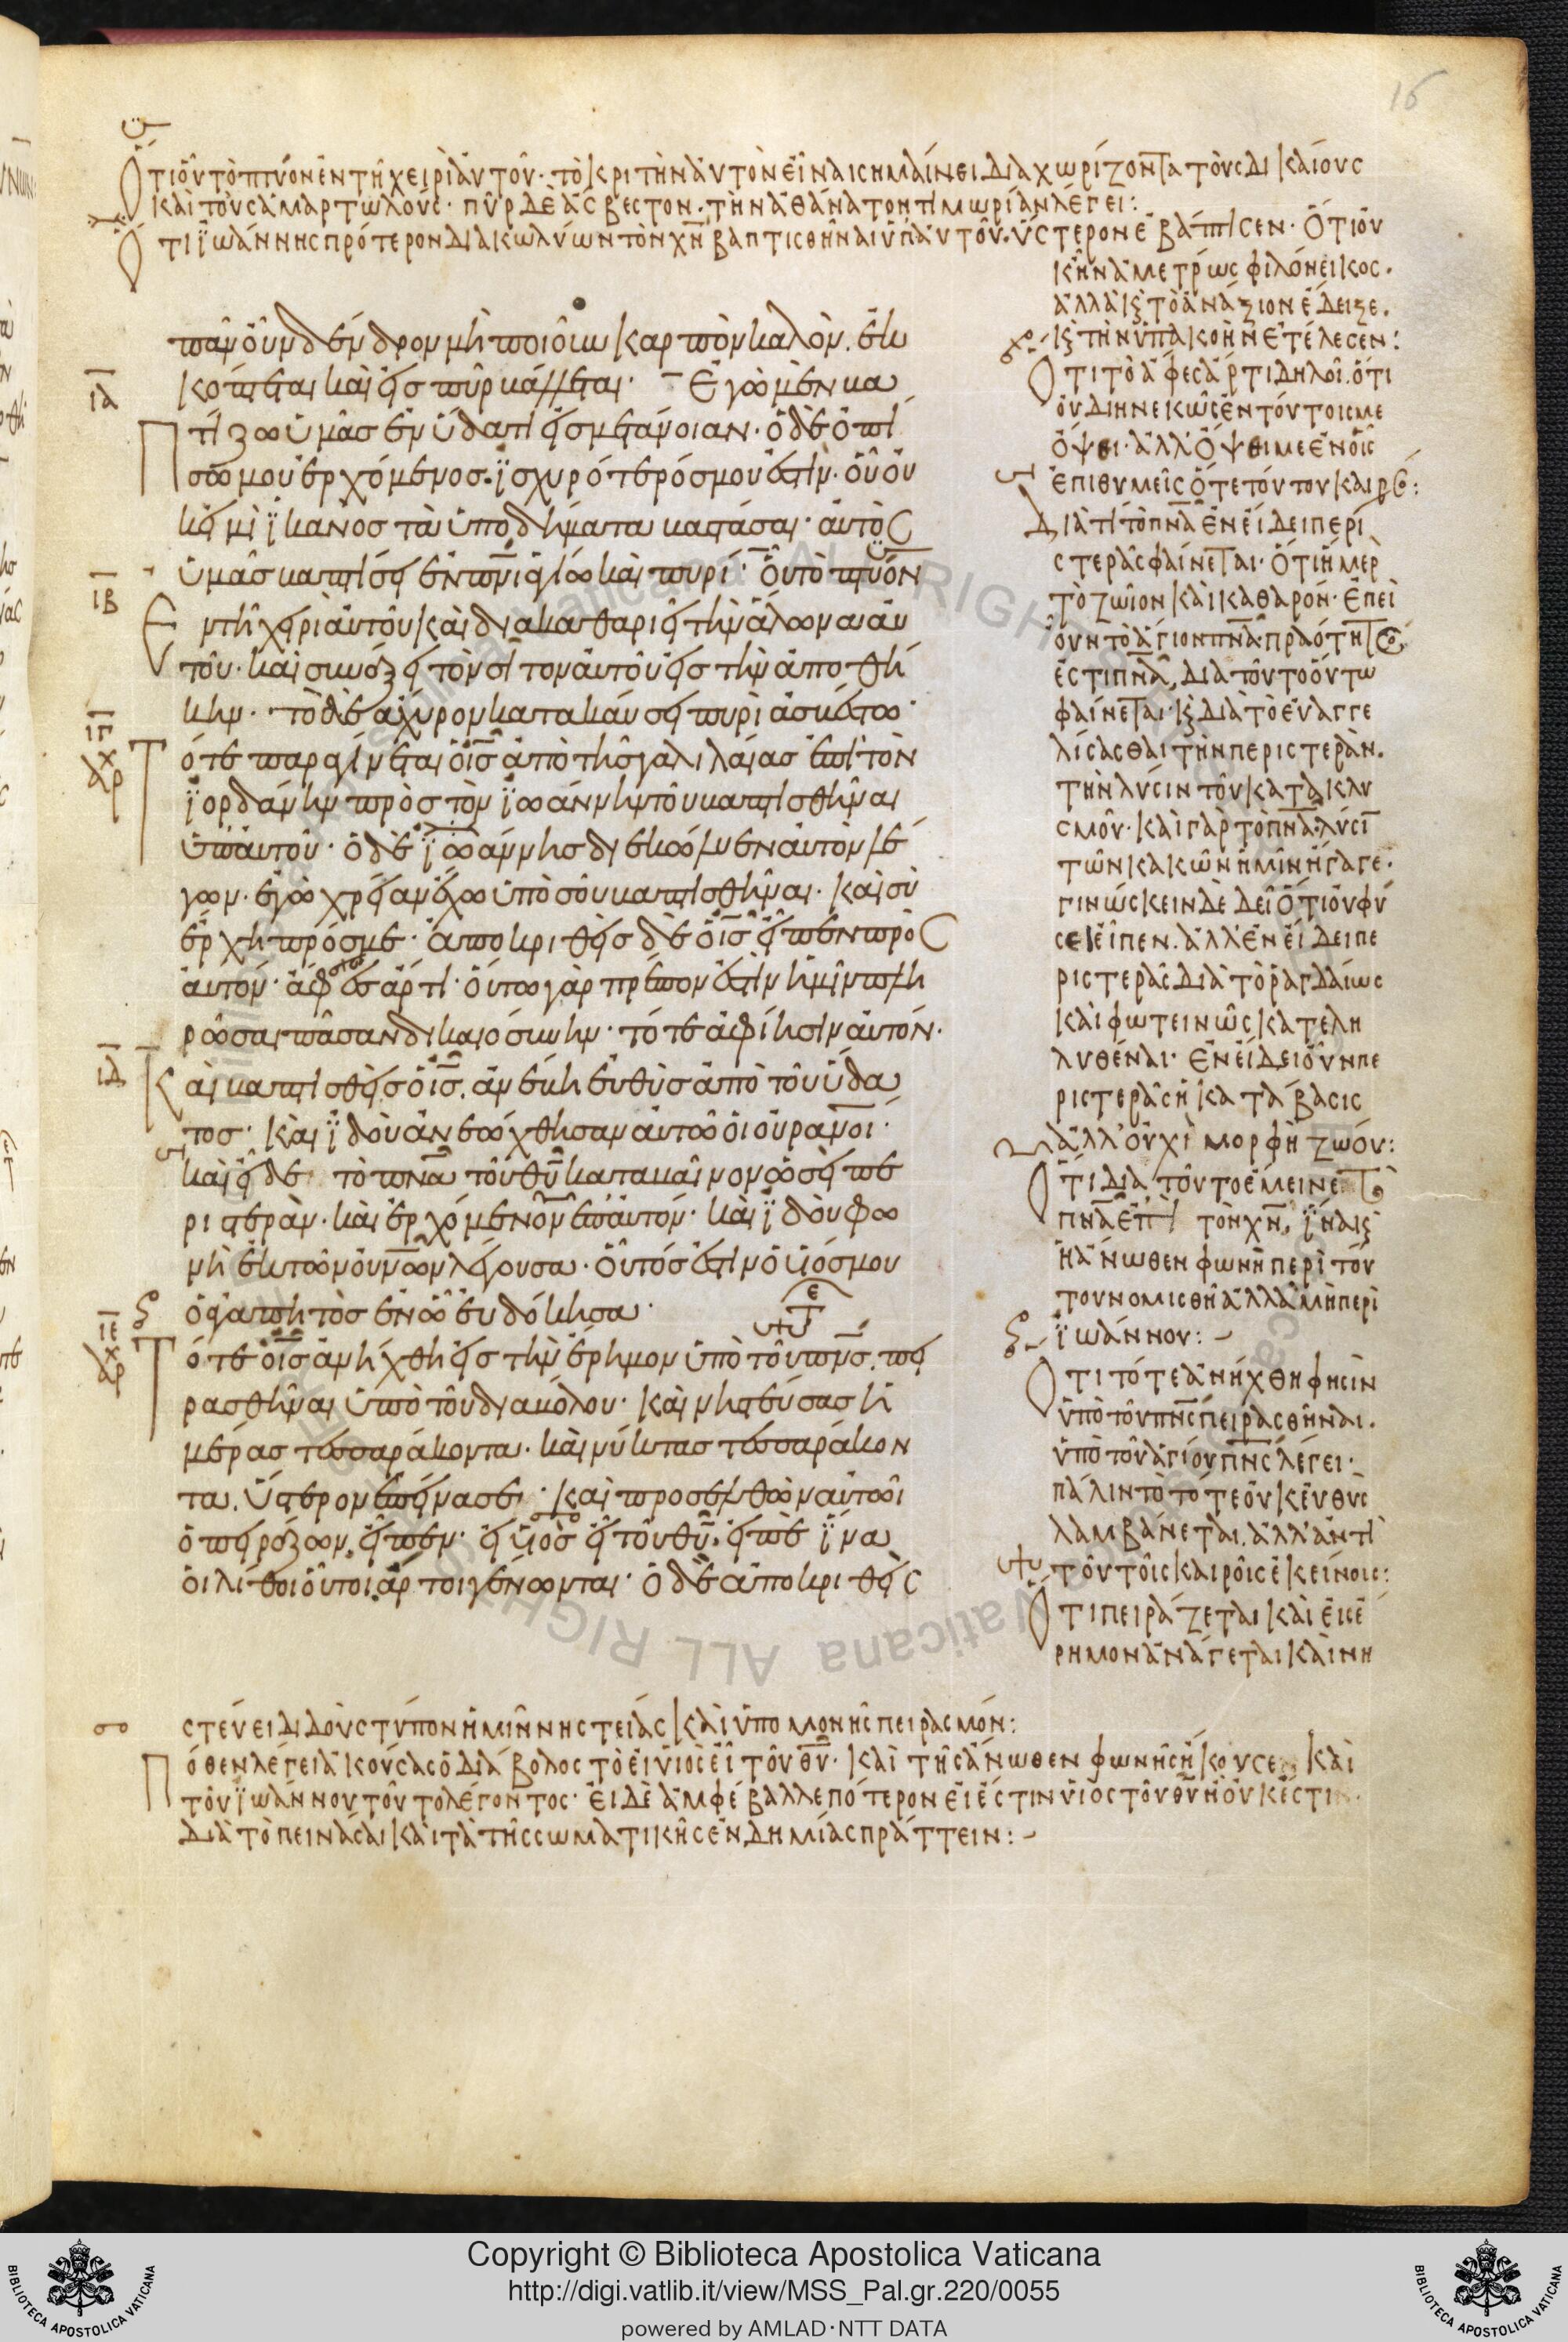 16
Ὅτι οὖν τὸ πτύον ἐν τῇ χειρὶ αὐτοῦ· τὸ κριτὴν αὐτὸν εἶναι σημαίνει διαχωρίζοντα τοὺς δικαίους
καὶ τοὺς ἁμαρτωλούς· πῦρ δὲ ἄσβεστον· τὴν ἀθάνατον τιμωρίαν λέγει:
Ὅτι ϊωάννης πρότερον διακωλύων τὸν χν̅ βαπτισθῆναι ὑπ' αὐτοῦ· ὕστερον ἐβάπτισεν· Ὅτι οὐ
κῆν ἀμέτρως φιλόνεικος·
ἀλλὰ κὶ τὸ ἀνάξιον ἔδειξε.
κὶ τὴν ὑπακοὴν ἐτέλεσεν:
πᾶν οὖν δένδρον μὴ ποιοῦν καρπὸν καλὸν. ἐκ
κόπτεται καὶ εἰς πῦρ βάλλεται· Ἐγὼ μὲν βα
ια
πτίζω ὑμᾶς ἐν ὕδατι εἰς μετάνοιαν· ὁ δὲ ὀπί
σω μου ἐρχόμενος· ϊσχυρότερός μου ἐστὶν· οὗ οὐ
κ εἰμὶ ϊκανὸς τὰ ὑποδήματα βαστάσαι· αὐτὸς
ὑμᾶς βαπτίσει ἐν πνι̅ ἁγίω καὶ πυρί· Οὗ τὸ πτύον
ιβ
ἐν τῇ χειρὶ αὐτοῦ καὶ διακαθαριεῖ τὴν ἅλωνα αὐ
τοῦ· καὶ συνάξει τὸν σῖτον αὐτοῦ εἰς τὴν ἀποθή
κην· τὸ δὲ ἄχυρον κατακαύσει πυρὶ ἀσβέστω·
ιγ
Τότε παραγίνεται ὁ ισ̅ ἀπὸ τῆς γαλιλαίας ἐπὶ τὸν
ϊορδάνην πρὸς τὸν ϊωάννην τοῦ βαπτισθῆναι
ὑπ' αὐτοῦ· ὁ δὲ ϊωάννης διεκώλυεν αὐτὸν λέ
γων· ἐγὼ χρείαν ἔχω ὑπὸ σοῦ βαπτισθῆναι· καὶ σὺ
ἔρχη πρός με· ἀποκριθεὶς δὲ ὁ ισ̅ εἶπεν πρὸς
αὐτόν· ἄφες ἄρτι· οὕτω γὰρ πρέπον ἐστὶν ἡμῖν πλη
ρῶσαι πᾶσαν δικαιοσύνην· τότε ἀφίησιν αὐτόν·
ιδ
Καὶ βαπτισθεὶς ὁ ισ̅. ἀνέβη εὐθὺς ἀπὸ τοῦ ὕδα
τος· καὶ ϊδοὺ ἀνεώχθησαν αὐτῶ οἱ οὐρανοι̅·
καὶ εἶδε τὸ πνα̅ τοῦ θυ̅ καταβαῖνον ὡσεὶ πε
ριστερὰν· καὶ ἐρχόμενον ἐπ' αὐτόν· καὶ ϊδοὺ φω
νὴ ἐκ τῶν οὐνω̅ν λέγουσα· οὗτός ἐστιν ὁ υἱός μου
ὁ ἀγαπητὸς ἐν ῶ εὐδόκησα·
ιε
Τότε ὁ ισ̅ ἀνήχθη εἰς τὴν ἔρημον ὑπὸ τοῦ πνσ̅. πει
ρασθῆναι ὑπὸ τοῦ διαβόλου· καὶ νηστεύσας ἡ
μέρας τεσσαράκοντα· καὶ νύκτας τεσσαράκον
τα. ὕστερον ἐπείνασε· καὶ προσελθὼν αὐτῶι
ὁ πειράζων. εἶπεν· εἰ υἱὸς εἶ τοῦ θυ̅. εἰπὲ ϊνα
οἱ λίθοι οὗτοι ἄρτοι γένωνται· ὁ δὲ ἀποκριθεὶς
Ὅτι τὸ ἄφες ἄρτι δηλοῖ. ὅτι
οὐ διηνεκῶς ἐν τούτοις με
ὄψει· ἀλλ' ὄψει με ἐν οἷς
ἐπιθυμεῖς
Διὰ τί τὸ πνα̅ ἐν εἴδει περι
στερᾶς φαίνεται· ὅτι ἥμερ
τὸ ζῶιον καὶ καθαρόν· ἐπεὶ
οὖν τὸ ἅγιον πνα̅ πραότητος
ἐστι πνα̅, διὰ τοῦτο οὕτω
φαίνεται· κὶ διὰ τὸ εὐαγγε
λίσασθαι τὴν περιστερὰν.
τὴν λύσιν τοῦ κατακλυ
σμοῦ· καὶ γὰρ τὸ πνα̅ λύσι
τῶν κακῶν ἡμῖν ἤγαγε·
γινώσκειν δὲ δεῖ ὅτι οὐ φύ
σει εἶπεν. ἀλλ' ἐν εἴδει πε
ριστερᾶς διὰ τὸ ῥαγδαίως
καὶ φωτεινῶς κατελη
λυθέναι· ἐν εἴδει οὖν πε
ριστερᾶς ἡ κατάβασις
ἀλλ' οὐχὶ μορφὴ ζώου:
Ὅτι διὰ τοῦτο ἔμεινε τὸ
πνα̅ ἐπὶ τὸν χν̅, ϊνα
ἡ ἄνωθεν φωνὴ περὶ τού
του νομισθῆ ἀλλὰ μὴ περὶ
ϊωάννου:
Ὅτι τότε ἀνήχθη φησὶν
ὑπὸ τοῦ πνς̅ πειρασθῆναι.
ὑπὸ τοῦ ἁγίου πνς̅ λέγει·
πάλιν τὸ τότε οὐκ εὐθὺς
λαμβάνεται. ἀλλ' ἀντὶ
τοῦ τοῖς καιροῖς ἐκείνοις:
Ὅτι πειράζεται καὶ εἰς ἔ
ρημον ἀνάγεται καὶ νη
στεύει διδοὺς τύπον ἡμῖν νηστείας καὶ ὑπομονῆς πειρασμόν:
Πόθεν λέγει ἀκούσας ὁ διάβολος τὸ εἰ υἱὸς εἶ τοῦ θυ̅· καὶ τῆς ἄνωθεν φωνῆς ἤκουσε καὶ
τοῦ ϊωάννου τοῦτο λέγοντος· εἰ δὲ ἀμφέβαλλε πότερον εἰ ἐστιν υἱὸς τοῦ θυ̅ ἢ οὐκ ἔστιν·
διὰ τὸ πεινάσαι καὶ τὰ τῆς σωματικῆς ἐνδημίας πράττειν:
Copyright © Biblioteca Apostolica Vaticana
http://digi.vatlib.it/view/MSS_Pal.gr.220/0055
powered by AMLAD·NTT DATA
BIBLIOTECA APOSTOLICA VATICANA
BIBLIOTECA APOSTOLICA VATICANA